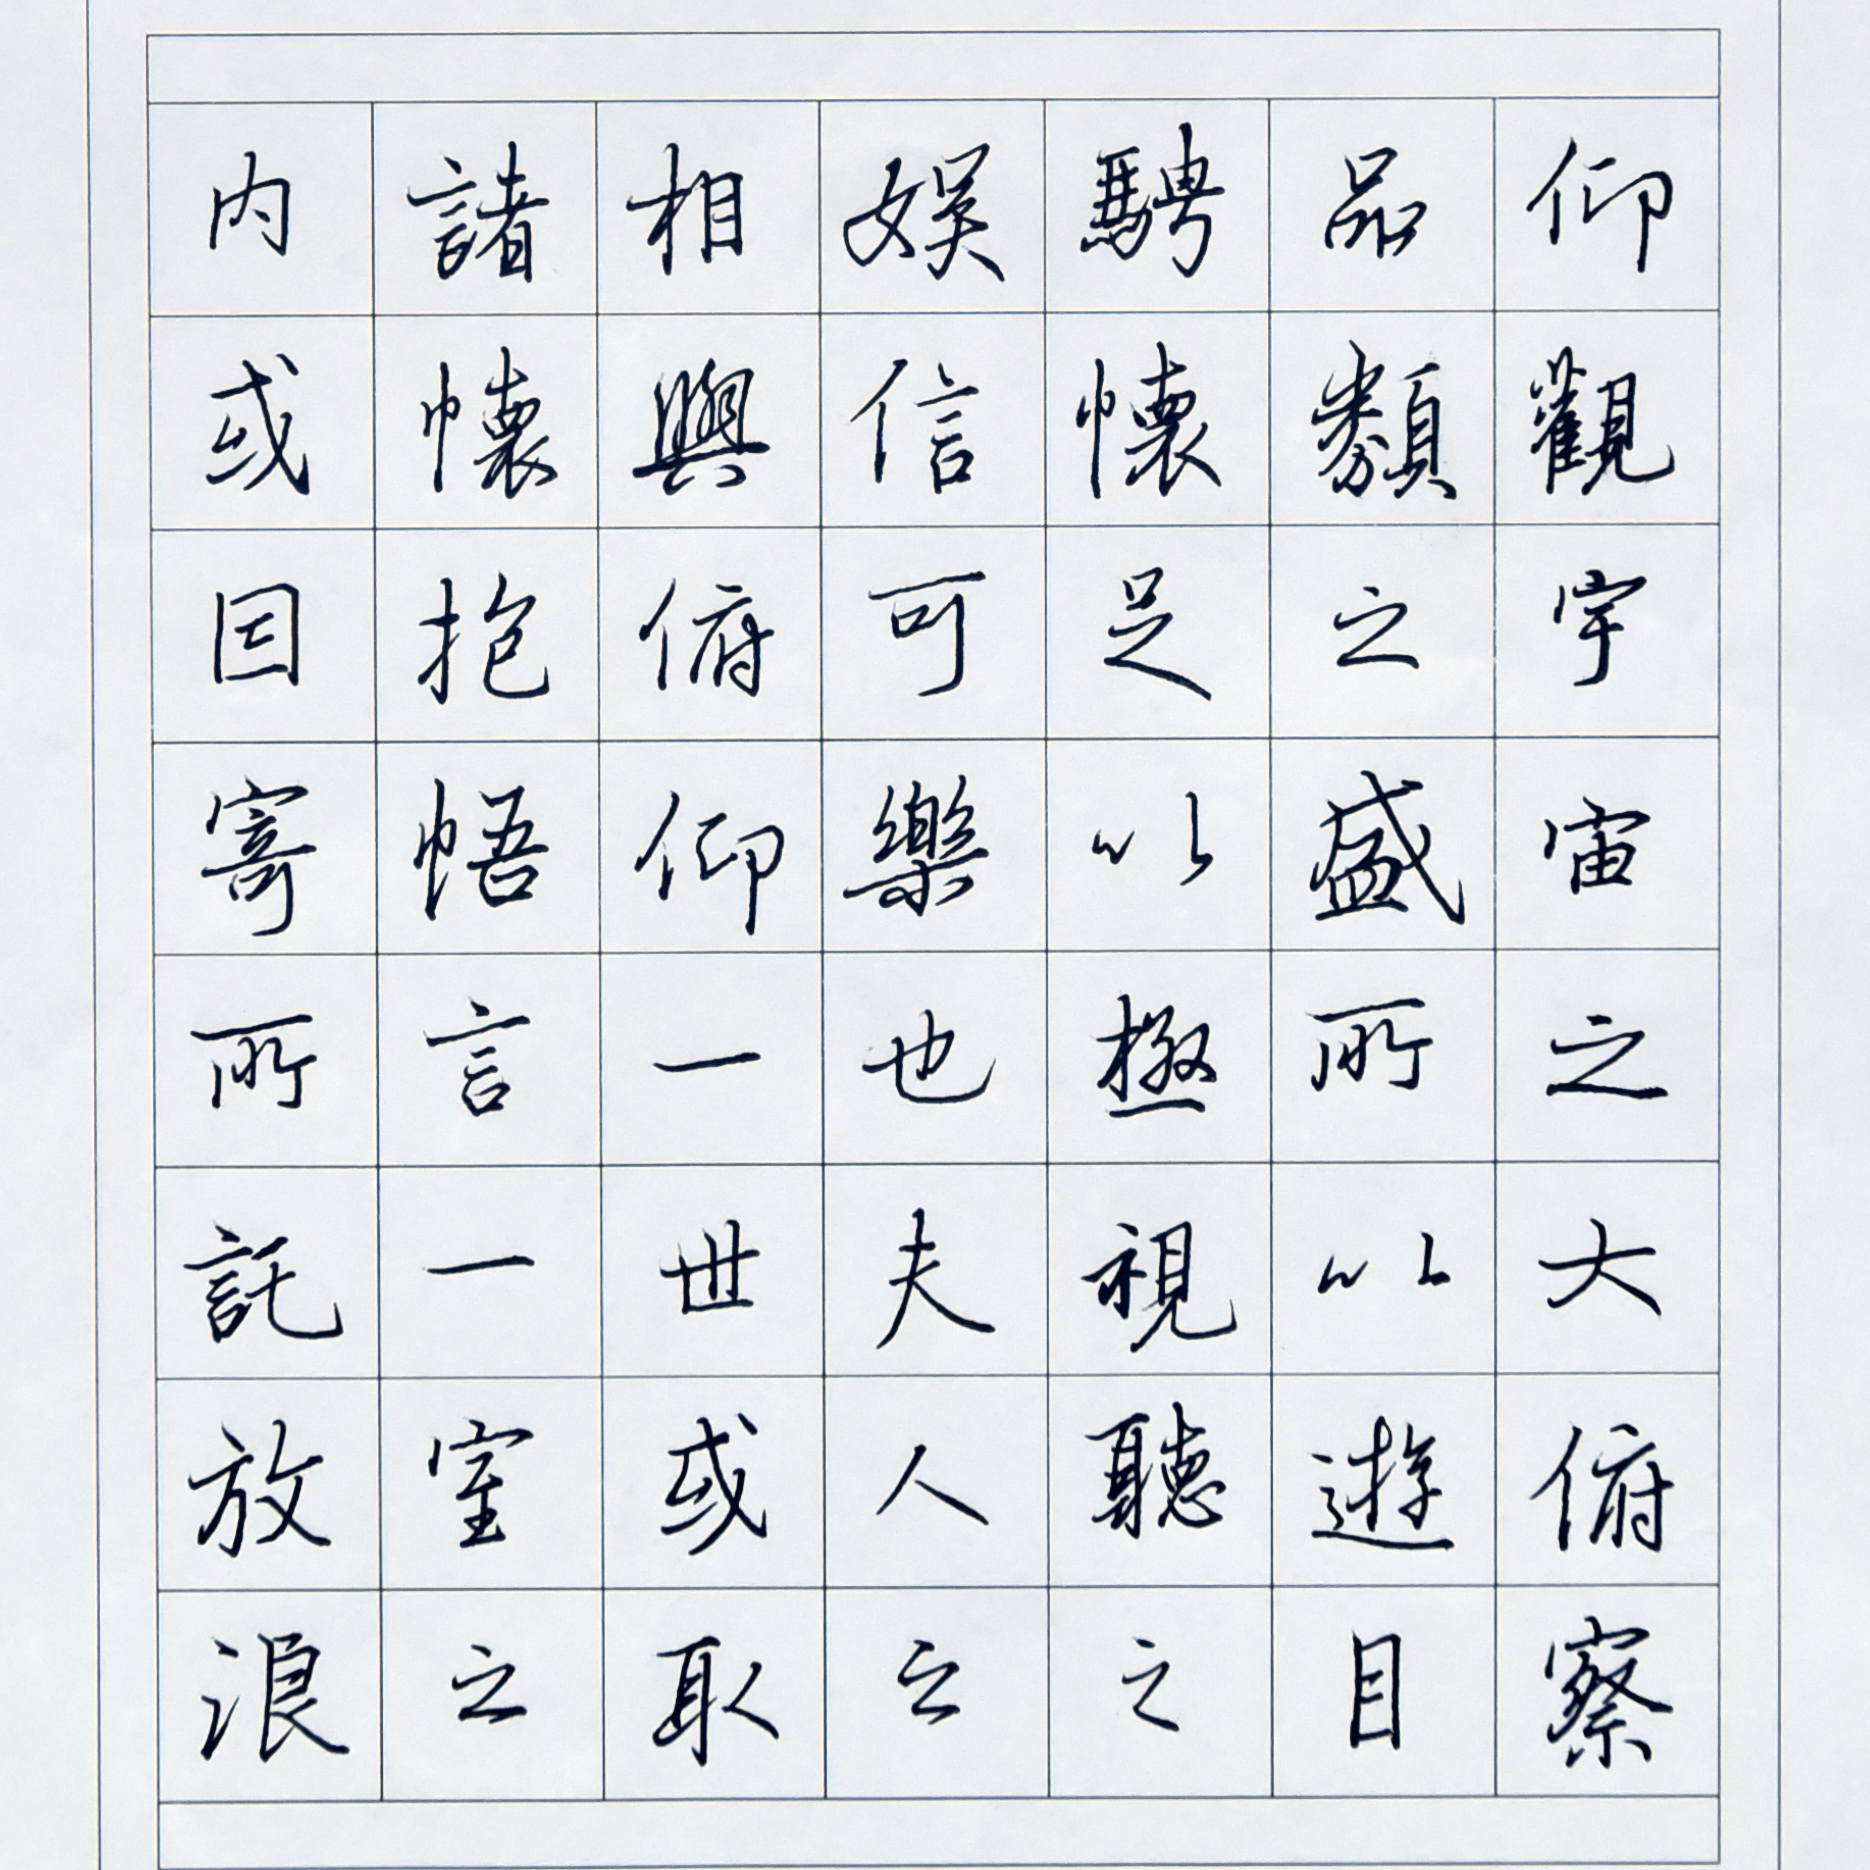 仰觀宇宙之大俯察
品類之盛所以遊目
騁懷足以極視聽之
娛信可樂也夫人之
相與俯仰一世或取
諸懷抱悟言一室之
內或因寄所託放浪